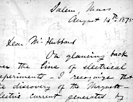 Salem, Mass
August 14th 1875
Dear Mr Hubbard
On glancing back
over the line of electrical
experiments - I recognize that
the discovery of the Magneto
electric current generated by